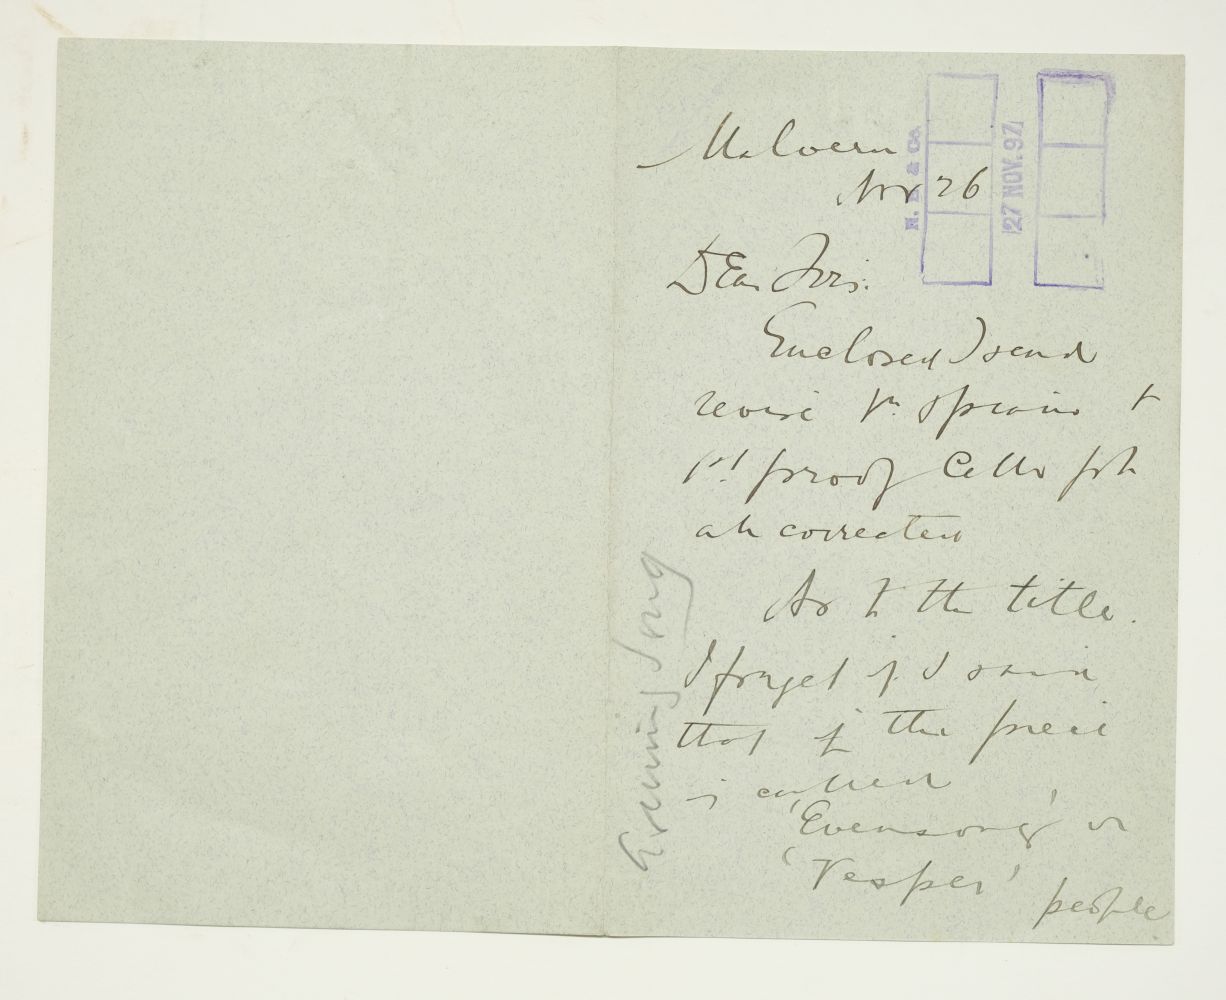 Malvern
Nov 26
Dear
Enclosed I send
revise Vn. & piano &
1st. proof Cello pt
all corrected
As to the title.
I forget if I said
that if the piece
is called
'Evensong' or
'Vesper' people
Evening Song
N. E. & Co.
27 NOV. 97